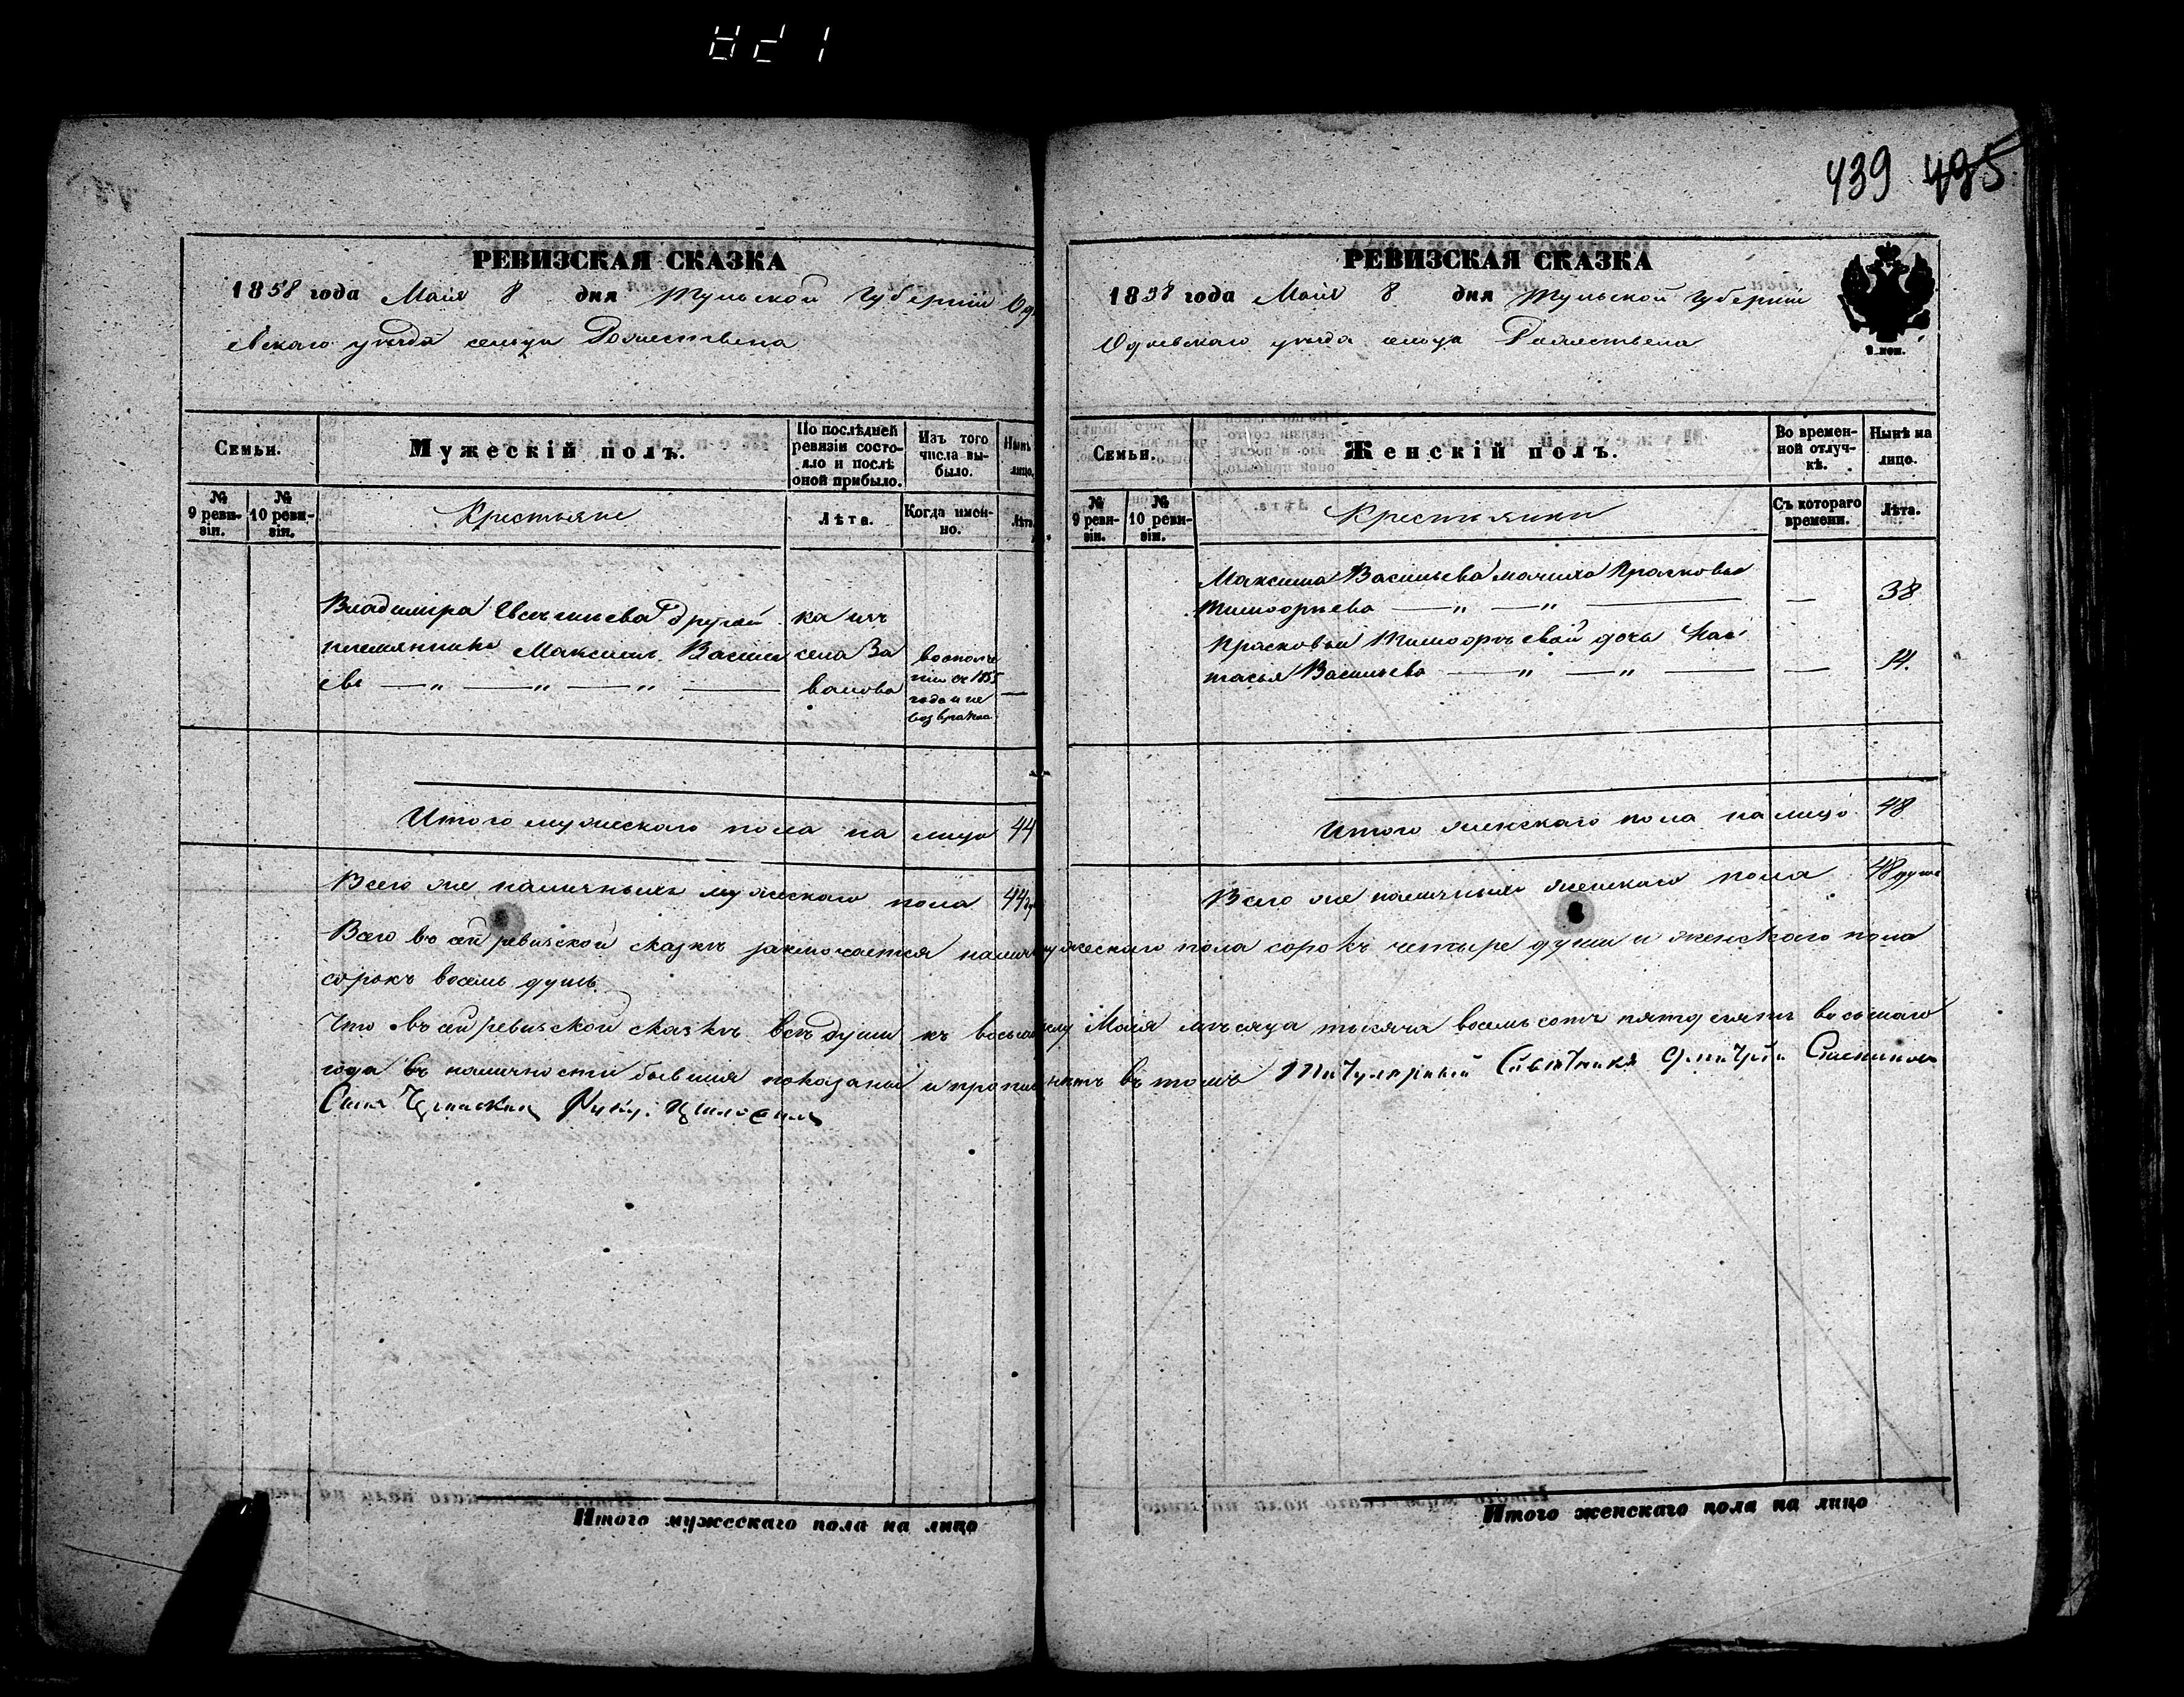 439 495
РЕВИЗСКАЯ СКАЗКА
1858 года Маія 8 дня Тульской Губерніи Одо
евскаго уѣзда сельца Рожествена
Семьи.
Мужескій полъ.
По послѣдней ревизіи состояло и послѣ оной прибыло.
Изъ того числа выбыло.
Нынѣ лицо.
№ 9 ревизіи.
№ 10 ревизіи.
Крестьяне
Лѣта.
Когда именно.
Лѣта.
Владиміра другой
племянникъ Максимъ Василь
евъ — " — " — " —
села За
валова
въ ополче
ніи съ 1855
года и не
возврати
—
Итого мужескаго пола на лицо 44
Всего же наличныхъ мужескаго пола 44
РЕВИЗСКАЯ СКАЗКА
1858 года Маія 8 дня Тульской Губерніи
Одоевскаго уѣзда сельца Рожествена
9 коп.
Семьи.
Женскій полъ.
Во временной отлучкѣ.
Нынѣ на лицо.
№ 9 ревизіи.
№ 10 ревизіи.
Крестьянки
Съ котораго времени.
Лѣта.
Максима Васильева мачиха Прасковья
Тимофѣева — " — " — — 38
Прасковьи Тимофѣевой дочь Нас
тасья Васильева — " — " — — 14.
Итого женскаго пола на лицо 48
Всего же наличныхъ женскаго пола 48 душъ
Всего въ сей ревизской сказкѣ заключается налич мужескаго пола сорокъ четыре души и женскаго пола
сорокъ восемь душъ.
Что въ сей ревизской сказкѣ всѣ души къ восьмому Маія мѣсяца тысяча восемьсотъ пятдесятъ восьмаго
года въ наличности бывшія показаны и прописныхъ нѣтъ въ томъ Титулярный Совѣтникъ Дмитрій Степановъ
Сынъ Руку приложилъ
Итого мужескаго пола на лицо
Итого женскаго пола на лицо